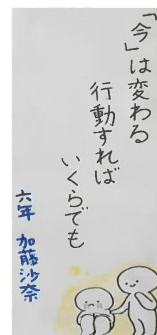 「今」は変わる
行動すれば
いくらでも
六年 加藤沙奈